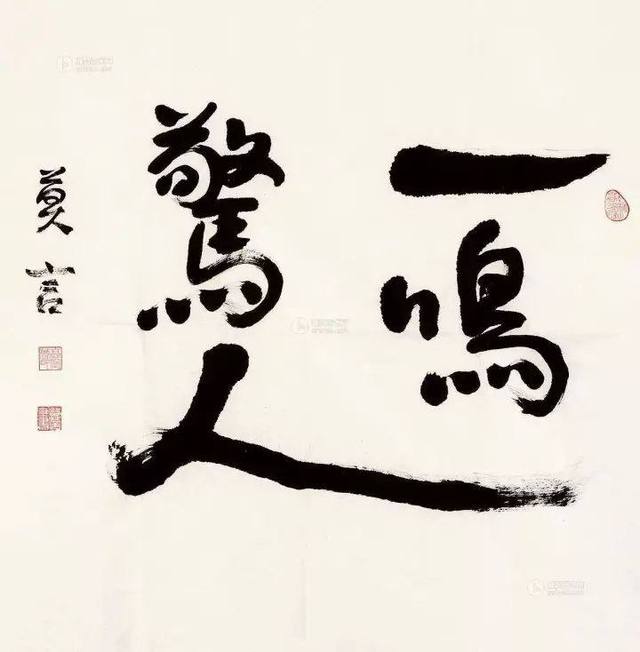 一鳴
驚人
莫言